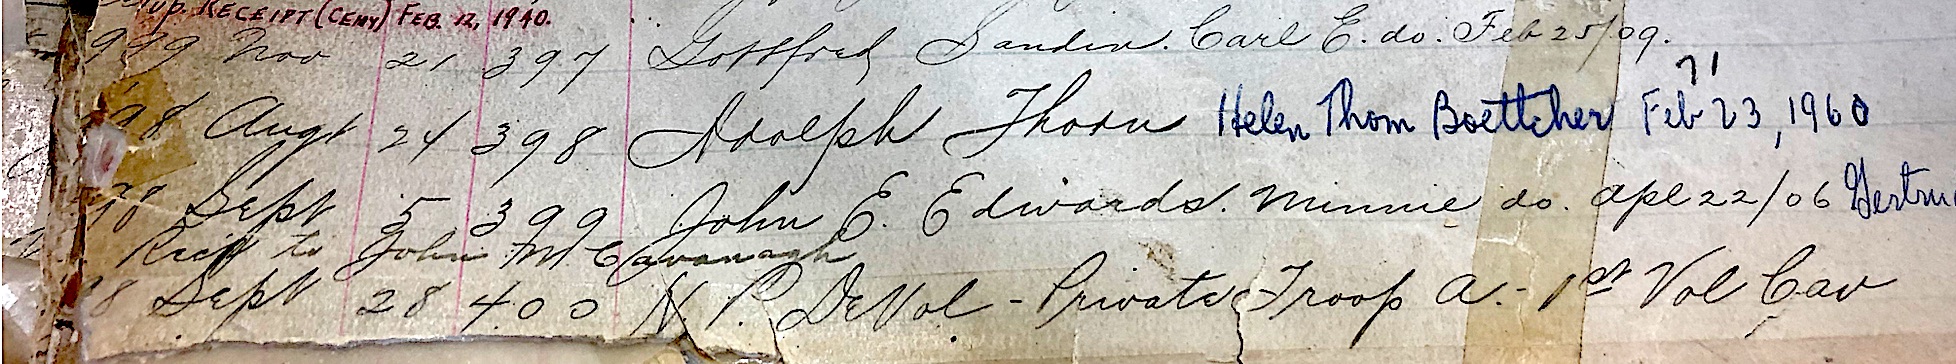 Dup. RECEIPT (CEMY) FEB. 12, 1940.
999 Nov 21 397 Gottfred Sandin. Carl E. do. Feb 25/09.
98 Augt 24 398 Adolph Thom Helen Thom Boettcher Feb 23, 1960 71
98 Sept 5 399 John E. Edwards. Minnie do. Apl 22/06
Rect to John McCavanagh
98 Sept 28 400 N. P. DeVol - Private Troop A. - 1st Vol Cav